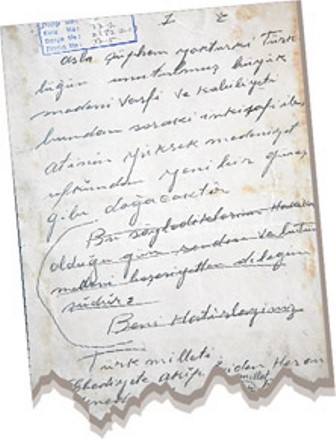 Asla şüphem yoktur ki Türk
lüğün unutulmuş büyük
medeni vasfı ve kabiliyeti
bundan sonraki inkişafı ile
atinin yüksek medeniyet
ufkundan yeni bir güneş
gibi doğacaktır
Bu söylediklerim Hakikat
olduğu gün senden ve bütün
medeni beşeriyetten dileğim
şudur:
Beni Hatırlayınız
Türk milleti
Ebediyete akıp giden Her on
millet